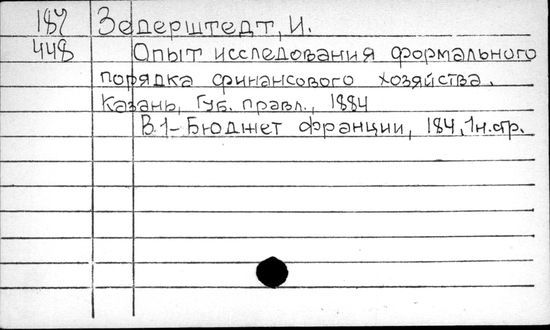 187 Зедерштедт, И.
448 Опыт исследования формального
порядка финансового хозяйства.
Казань, Губ. правл., 1884
В.1-Бюджет Франции, 184, 1н.стр.